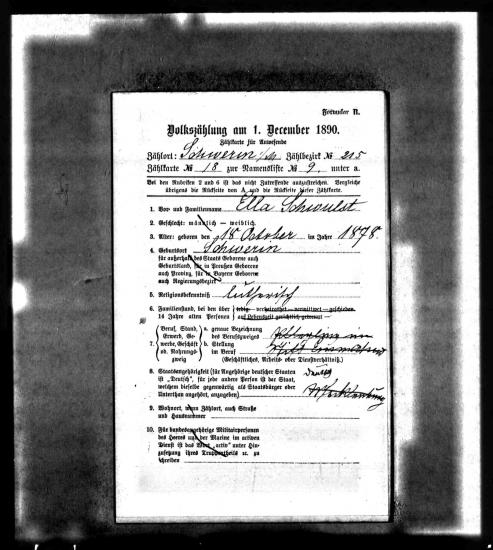 Formular II.
Volkszählung am 1. December 1890.
Zählkarte für Anwesende
Zählort: Schwerin i/M Zählbezirk № 215
Zählkarte № 18 zur Namensliste № 9, unter a.
Bei den Rubriken 2 und 6 ist das nicht Zutreffende auszustreichen. Vergleiche
übrigens die Rückseite von A und die Rückseite dieser Zählkarte.
1. Vor- und Familienname Ella Schwulst
2. Geschlecht: männlich – weiblich.
3. Alter: geboren den 18 October im Jahre 1878.
4. Geburtsort Schwerin
für außerhalb des Staats Geborene auch
Geburtsland, für in Preußen Geborene
auch Provinz, für in Bayern Geborene
auch Regierungsbezirk
5. Religionsbekenntniß lutherisch
6. Familienstand, bei den über ledig – verheirathet – verwittwet – geschieden.
14 Jahre alten Personen auf Lebenszeit gerichtlich getrennt –
Beruf, Stand, a. genaue Bezeichnung
Erwerb, Ge- des Berufszweiges
7. werbe, Geschäft b. Stellung
od. Nahrungs- im Beruf
zweig (Geschäftliches, Arbeits- oder Dienstverhältniß.)
8. Staatsangehörigkeit (für Angehörige deutscher Staaten deutsch
ist „Deutsch“, für jede andere Person ist der Staat,
welchem dieselbe gegenwärtig als Staatsbürger oder Mecklenburg
Unterthan angehört, anzugeben)
9. Wohnort, wenn Zählort, auch Straße
und Hausnummer
10. Für bundesangehörige Militairpersonen
des Heeres und der Marine im activen
Dienst ist das Wort „activ“ unter Hin-
zusetzung ihres Truppentheils ꝛc. zu
schreiben